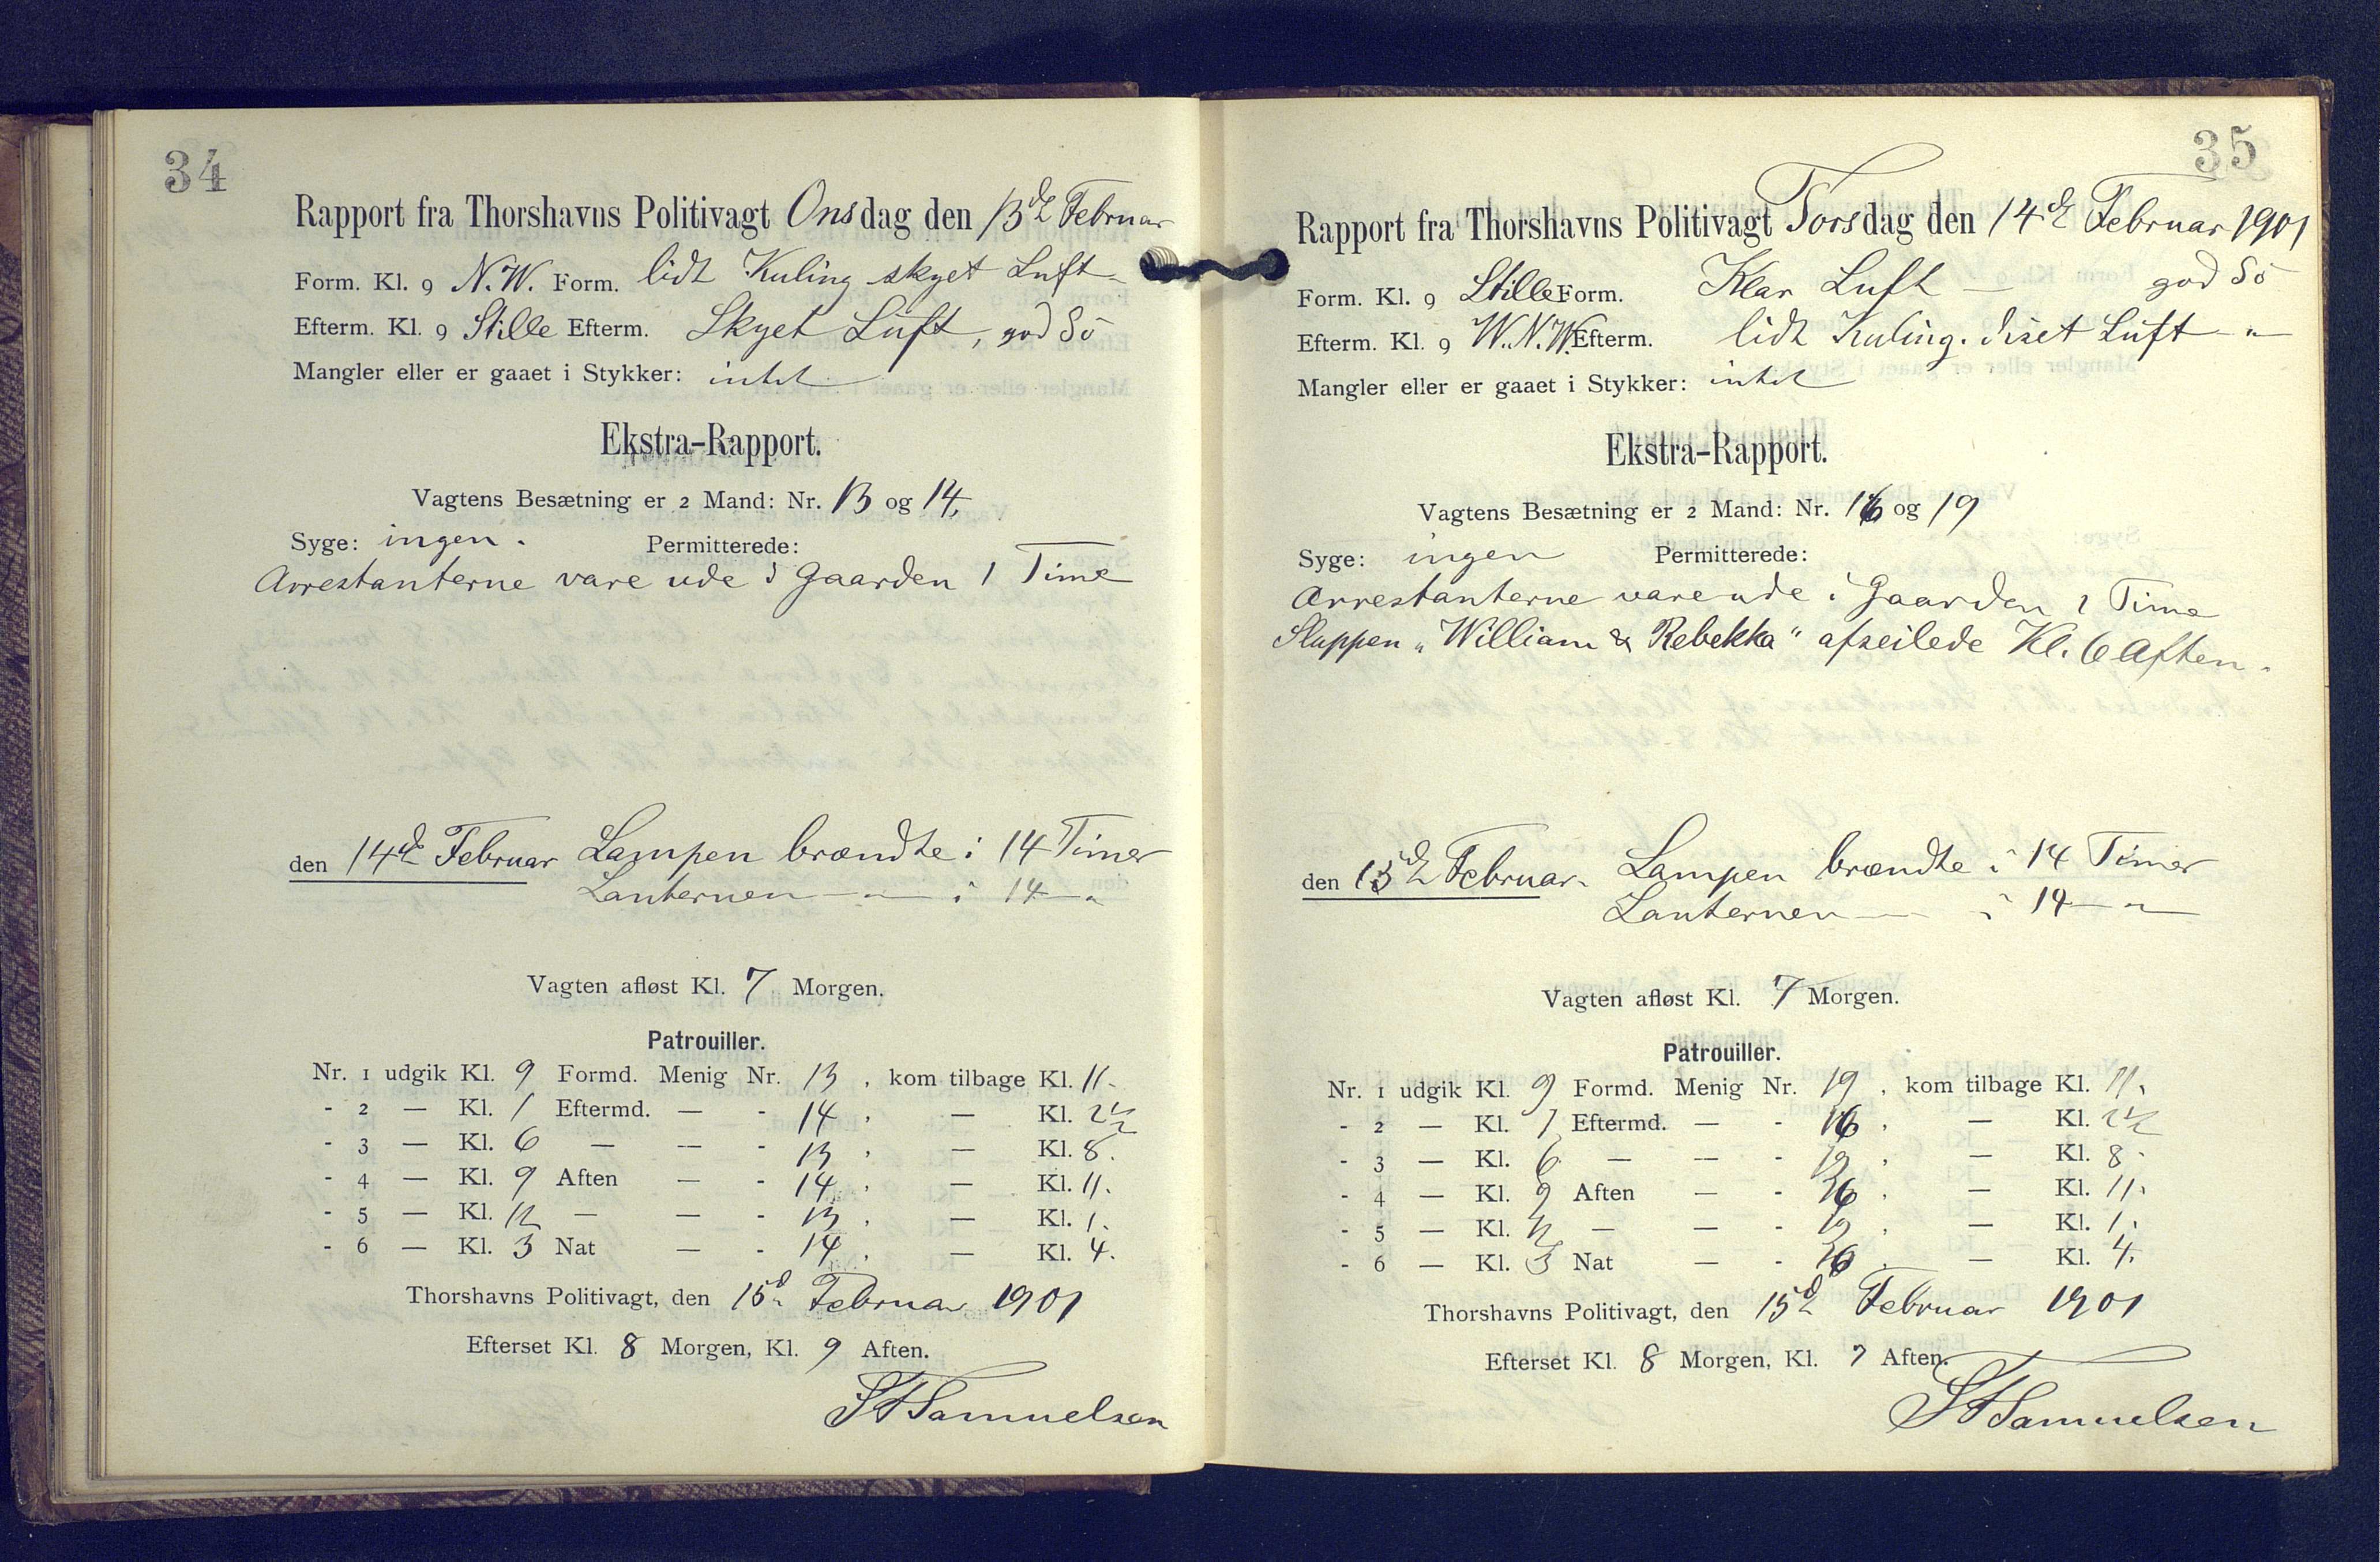 34
Rapport fra Thorshavns Politivagt Onsdag den 13de Februar
Form. Kl. 9 N.W. Form. lidt Kuling skyet Luft -
Efterm. Kl. 9 Stille Efterm. Skyet Luft, god Sö
Mangler eller er gaaet i Stykker: intet
Ekstra-Rapport.
Vagtens Besætning er 2 Mand: Nr. 13 og 14.
Syge: ingen. Permitterede:
Arrestanterne vare ude i Gaarden 1 Time
den 14de Februar Lampen brændte i 14 Timer
Lanternen — " — i 14 — "
Vagten afløst Kl. 7 Morgen.
Patrouiller.
Nr. 1 udgik Kl. 9 Formd. Menig Nr. 13, kom tilbage Kl. 11.
- 2 — Kl. 1 Eftermd. — - 14, — Kl. 2½
- 3 — Kl. 6 — — - 13, — Kl. 8.
- 4 — Kl. 9 Aften — - 14, — Kl. 11.
- 5 — Kl. 12 — — - 13, — Kl. 1.
- 6 — Kl. 3 Nat — - 14, — Kl. 4.
Thorshavns Politivagt, den 15d Februar 1901
Efterset Kl. 8 Morgen, Kl. 9 Aften.
Samuelsen
35
Rapport fra Thorshavns Politivagt Torsdag den 14de Februar 1901
Form. Kl. 9 Stille Form. Klar Luft — god Sö
Efterm. Kl. 9 W.N.W. Efterm. lidt Kuling. diset Luft - "
Mangler eller er gaaet i Stykker: intet
Ekstra-Rapport.
Vagtens Besætning er 2 Mand: Nr. 16 og 19
Syge: ingen Permitterede:
Arrestanterne vare ude i Gaarden 1 Time
Sluppen „William & Rebekka" afseilede Kl. 6 Aften.
den 15de Februar. Lampen brændte i 14 Timer
Lanternen — i 14 — " —
Vagten afløst Kl. 7 Morgen.
Patrouiller.
Nr. 1 udgik Kl. 9 Formd. Menig Nr. 19, kom tilbage Kl. 11.
- 2 — Kl. 1 Eftermd. — - 16, — Kl. 2½
- 3 — Kl. 6 — — - 19, — Kl. 8.
- 4 — Kl. 9 Aften — - 16, — Kl. 11.
- 5 — Kl. 12 — — - 19, — Kl. 1.
- 6 — Kl. 3 Nat — - 16, — Kl. 4.
Thorshavns Politivagt, den 15de Februar 1901
Efterset Kl. 8 Morgen, Kl. 7 Aften.
Samuelsen